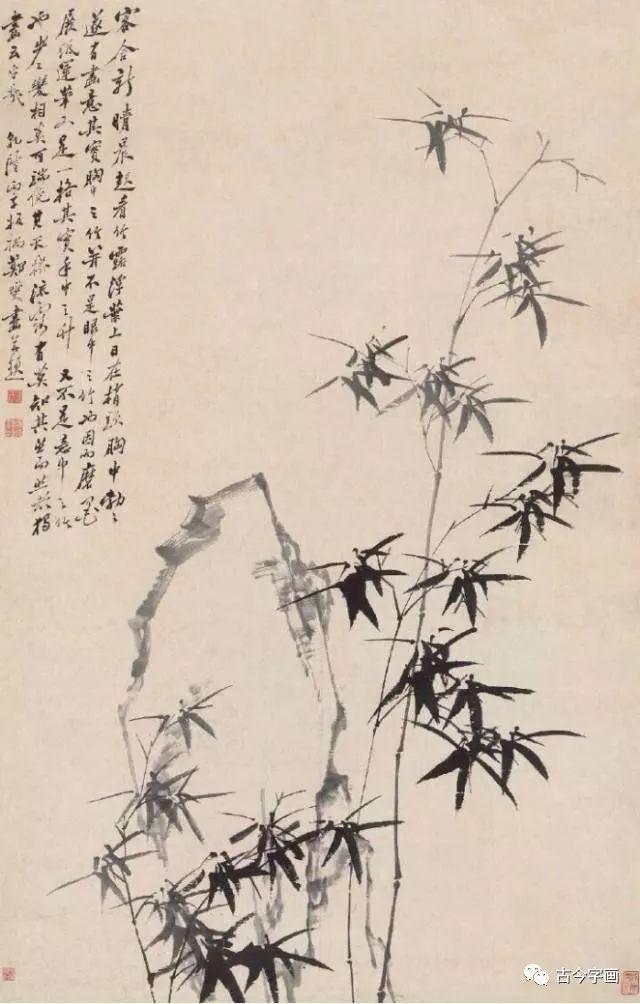 客舍新晴晨起看竹露浮葉上日在梢頭胸中勃々
遂有畫意其實胸中之竹并不是眼中之竹也因而磨墨
展紙運筆又是一格其實手中之竹又不是意中之竹
也步々變相莫可端倪其天機流露有莫知其然而然者獨
畫云乎哉 乾隆丙子板橋鄭燮畫並題
古今字画